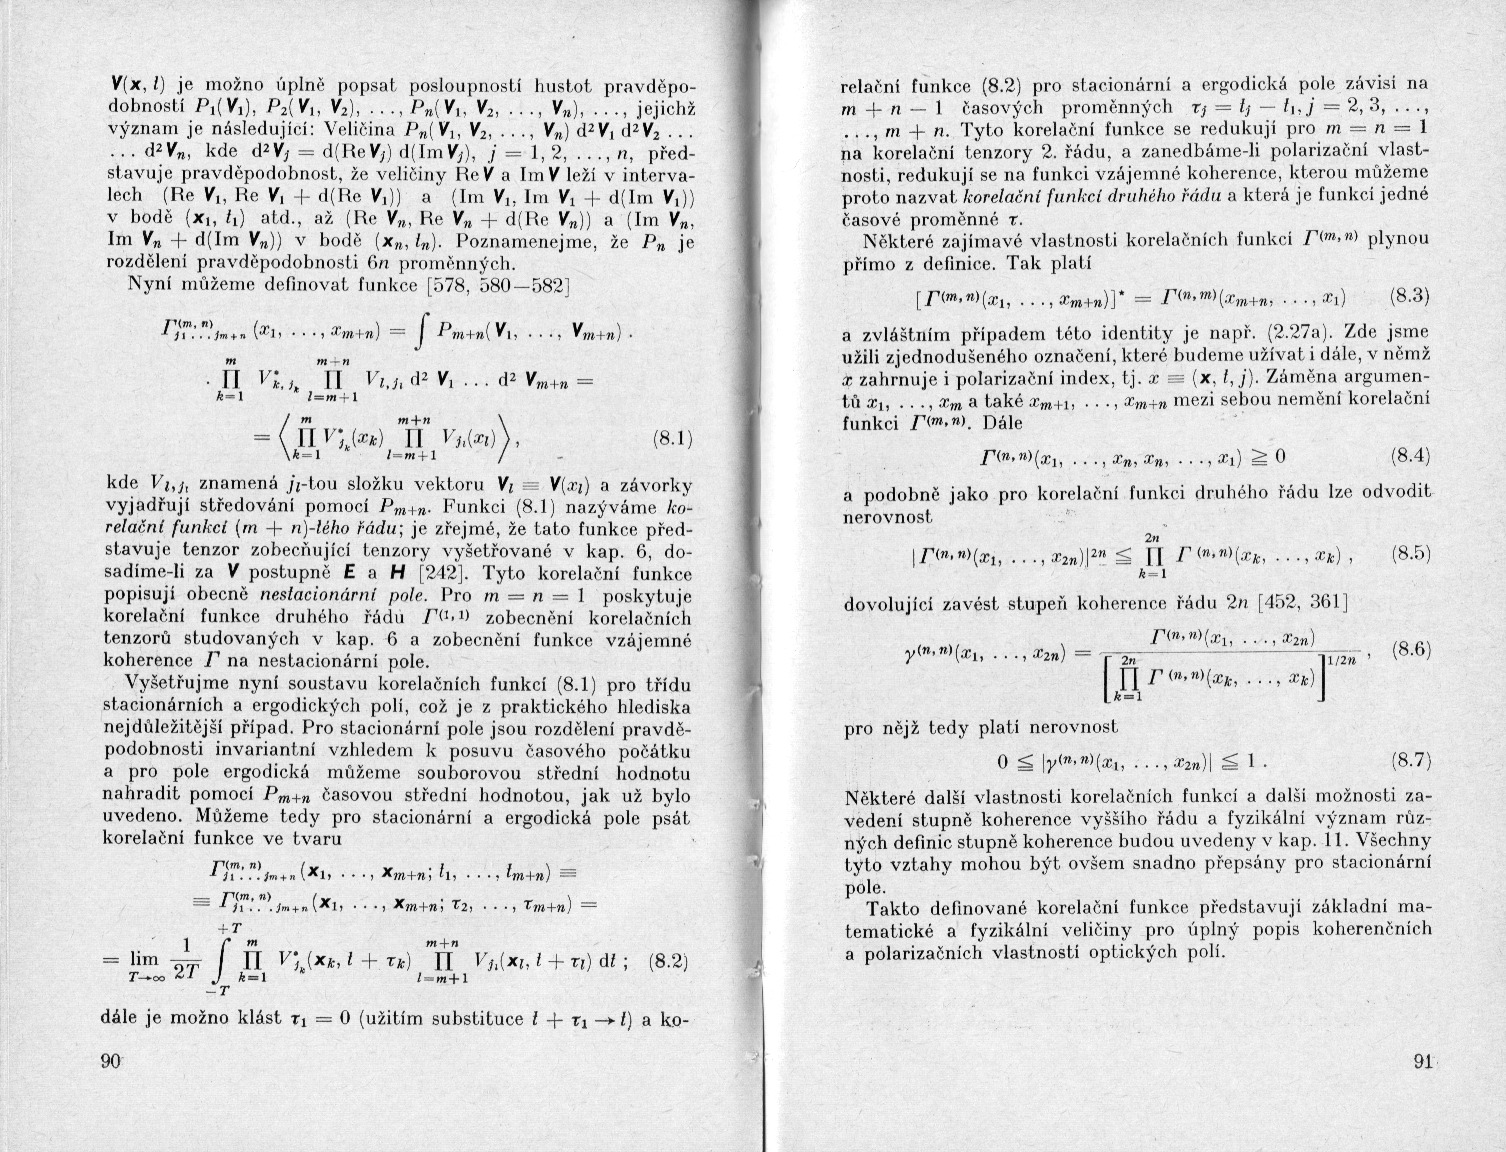 V(x, t) je možno úplně popsat posloupností hustot pravděpo-
dobností P₁(V₁), P₂(V₁, V₂), ..., Pₙ(V₁, V₂, ..., Vₙ), ..., jejichž
význam je následující: Veličina Pₙ(V₁, V₂, ..., Vₙ) d²V₁ d²V₂ ...
... d²Vₙ, kde d²Vⱼ = d(ReVⱼ) d(ImVⱼ), j = 1, 2, ..., n, před-
stavuje pravděpodobnost, že veličiny ReV a ImV leží v interva-
lech (Re V₁, Re V₁ + d(Re V₁)) a (Im V₁, Im V₁ + d(Im V₁))
v bodě (x₁, t₁) atd., až (Re Vₙ, Re Vₙ + d(Re Vₙ)) a (Im Vₙ,
Im Vₙ + d(Im Vₙ)) v bodě (xₙ, tₙ). Poznamenejme, že Pₙ je
rozdělení pravděpodobnosti 6n proměnných.
Nyní můžeme definovat funkce [578, 580—582]
Γ^{(m, n)}_{j₁...j_{m+n}} (x₁, ..., x_{m+n}) = ∫ P_{m+n}(V₁, ..., V_{m+n}) .
. ∏_{k=1}^{m} V*_{k, j_k} ∏_{l=m+1}^{m+n} V_{l, j_l} d² V₁ ... d² V_{m+n} =
= ⟨ ∏_{k=1}^{m} V*_{j_k}(x_k) ∏_{l=m+1}^{m+n} V_{j_l}(x_l) ⟩, (8.1)
kde V_{l, j_l} znamená j_l-tou složku vektoru V_l ≡ V(x_l) a závorky
vyjadřují středování pomocí P_{m+n}. Funkci (8.1) nazýváme ko-
relační funkcí (m + n)-tého řádu; je zřejmé, že tato funkce před-
stavuje tenzor zobecňující tenzory vyšetřované v kap. 6, do-
sadíme-li za V postupně E a H [242]. Tyto korelační funkce
popisují obecně nestacionární pole. Pro m = n = 1 poskytuje
korelační funkce druhého řádu Γ^{(1, 1)} zobecnění korelačních
tenzorů studovaných v kap. 6 a zobecnění funkce vzájemné
koherence Γ na nestacionární pole.
Vyšetřujme nyní soustavu korelačních funkcí (8.1) pro třídu
stacionárních a ergodických polí, což je z praktického hlediska
nejdůležitější případ. Pro stacionární pole jsou rozdělení pravdě-
podobnosti invariantní vzhledem k posuvu časového počátku
a pro pole ergodická můžeme souborovou střední hodnotu
nahradit pomocí P_{m+n} časovou střední hodnotou, jak už bylo
uvedeno. Můžeme tedy pro stacionární a ergodická pole psát
korelační funkce ve tvaru
Γ^{(m, n)}_{j₁...j_{m+n}} (x₁, ..., x_{m+n}; t₁, ..., t_{m+n}) ≡
≡ Γ^{(m, n)}_{j₁...j_{m+n}} (x₁, ..., x_{m+n}; τ₂, ..., τ_{m+n}) =
= lim_{T→∞} 1/2T ∫_{−T}^{+T} ∏_{k=1}^{m} V*_{j_k}(x_k, t + τ_k) ∏_{l=m+1}^{m+n} V_{j_l}(x_l, t + τ_l) dt ; (8.2)
dále je možno klást τ₁ = 0 (užitím substituce t + τ₁ → t) a ko-
90
relační funkce (8.2) pro stacionární a ergodická pole závisí na
m + n — 1 časových proměnných τⱼ = tⱼ — t₁, j = 2, 3, ...,
..., m + n. Tyto korelační funkce se redukují pro m = n = 1
na korelační tenzory 2. řádu, a zanedbáme-li polarizační vlast-
nosti, redukují se na funkci vzájemné koherence, kterou můžeme
proto nazvat korelační funkcí druhého řádu a která je funkcí jedné
časové proměnné τ.
Některé zajímavé vlastnosti korelačních funkcí Γ^{(m, n)} plynou
přímo z definice. Tak platí
[Γ^{(m, n)}(x₁, ..., x_{m+n})]* = Γ^{(n, m)}(x_{m+n}, ..., x₁) (8.3)
a zvláštním případem této identity je např. (2.27a). Zde jsme
užili zjednodušeného označení, které budeme užívat i dále, v němž
x zahrnuje i polarizační index, tj. x ≡ (x, t, j). Záměna argumen-
tů x₁, ..., xₘ a také x_{m+1}, ..., x_{m+n} mezi sebou nemění korelační
funkci Γ^{(m, n)}. Dále
Γ^{(n, n)}(x₁, ..., xₙ, xₙ, ..., x₁) ≧ 0 (8.4)
a podobně jako pro korelační funkci druhého řádu lze odvodit
nerovnost
|Γ^{(n, n)}(x₁, ..., x_{2n})|^{2n} ≦ ∏_{k=1}^{2n} Γ^{(n, n)}(x_k, ..., x_k) , (8.5)
dovolující zavést stupeň koherence řádu 2n [452, 361]
γ^{(n, n)}(x₁, ..., x_{2n}) = Γ^{(n, n)}(x₁, ..., x_{2n}) / [∏_{k=1}^{2n} Γ^{(n, n)}(x_k, ..., x_k)]^{1/2n} , (8.6)
pro nějž tedy platí nerovnost
0 ≦ |γ^{(n, n)}(x₁, ..., x_{2n})| ≦ 1 . (8.7)
Některé další vlastnosti korelačních funkcí a další možnosti za-
vedení stupně koherence vyššího řádu a fyzikální význam růz-
ných definic stupně koherence budou uvedeny v kap. 11. Všechny
tyto vztahy mohou být ovšem snadno přepsány pro stacionární
pole.
Takto definované korelační funkce představují základní ma-
tematické a fyzikální veličiny pro úplný popis koherenčních
a polarizačních vlastností optických polí.
91